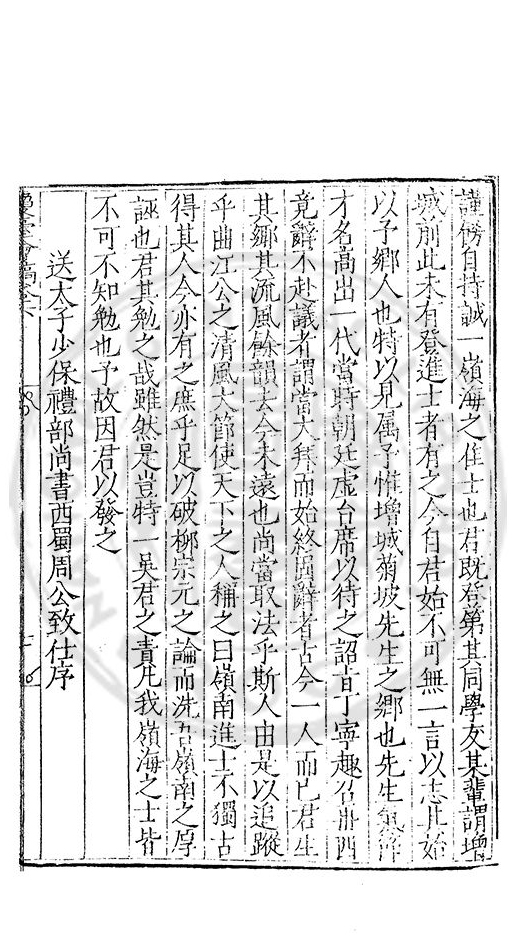 謹脩自持誠一嶺海之佳士也君既登第其同學友某輩謂增
城前此未有登進士者有之今自君始不可無一言以志此始
以予鄉人也特以見属予惟增城菊坡先生之鄉也先生氣節
才名高出一代當時朝廷虛台席以待之詔旨丁寧趣召冊四
竟辭不赴議者謂當大拜而始終固辭者古今一人而已君生
其鄉其流風餘韻去今未遠也尚當取法乎斯人由是以追蹤
乎曲江公之清風大節使天下之人稱之曰嶺南進士不獨古
得其人今亦有之庶乎足以破柳宗元之論而洗吾嶺南之厚
誣也君其勉之哉雖然是豈特一吳君之責凡我嶺海之士皆
不可不知勉也予故因君以發之
送太子少保禮部尚書西蜀周公致仕序